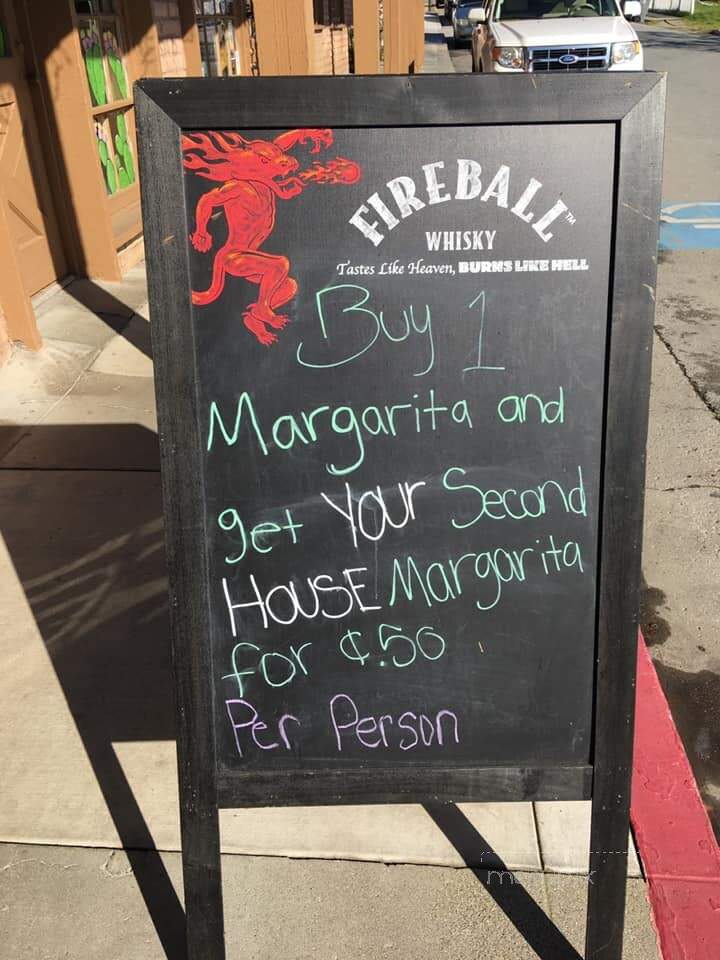 FIREBALL™
WHISKY
Tastes Like Heaven, BURNS LIKE HELL
Buy 1
Margarita and
get Your Second
HOUSE Margarita
for ¢.50
Per Person